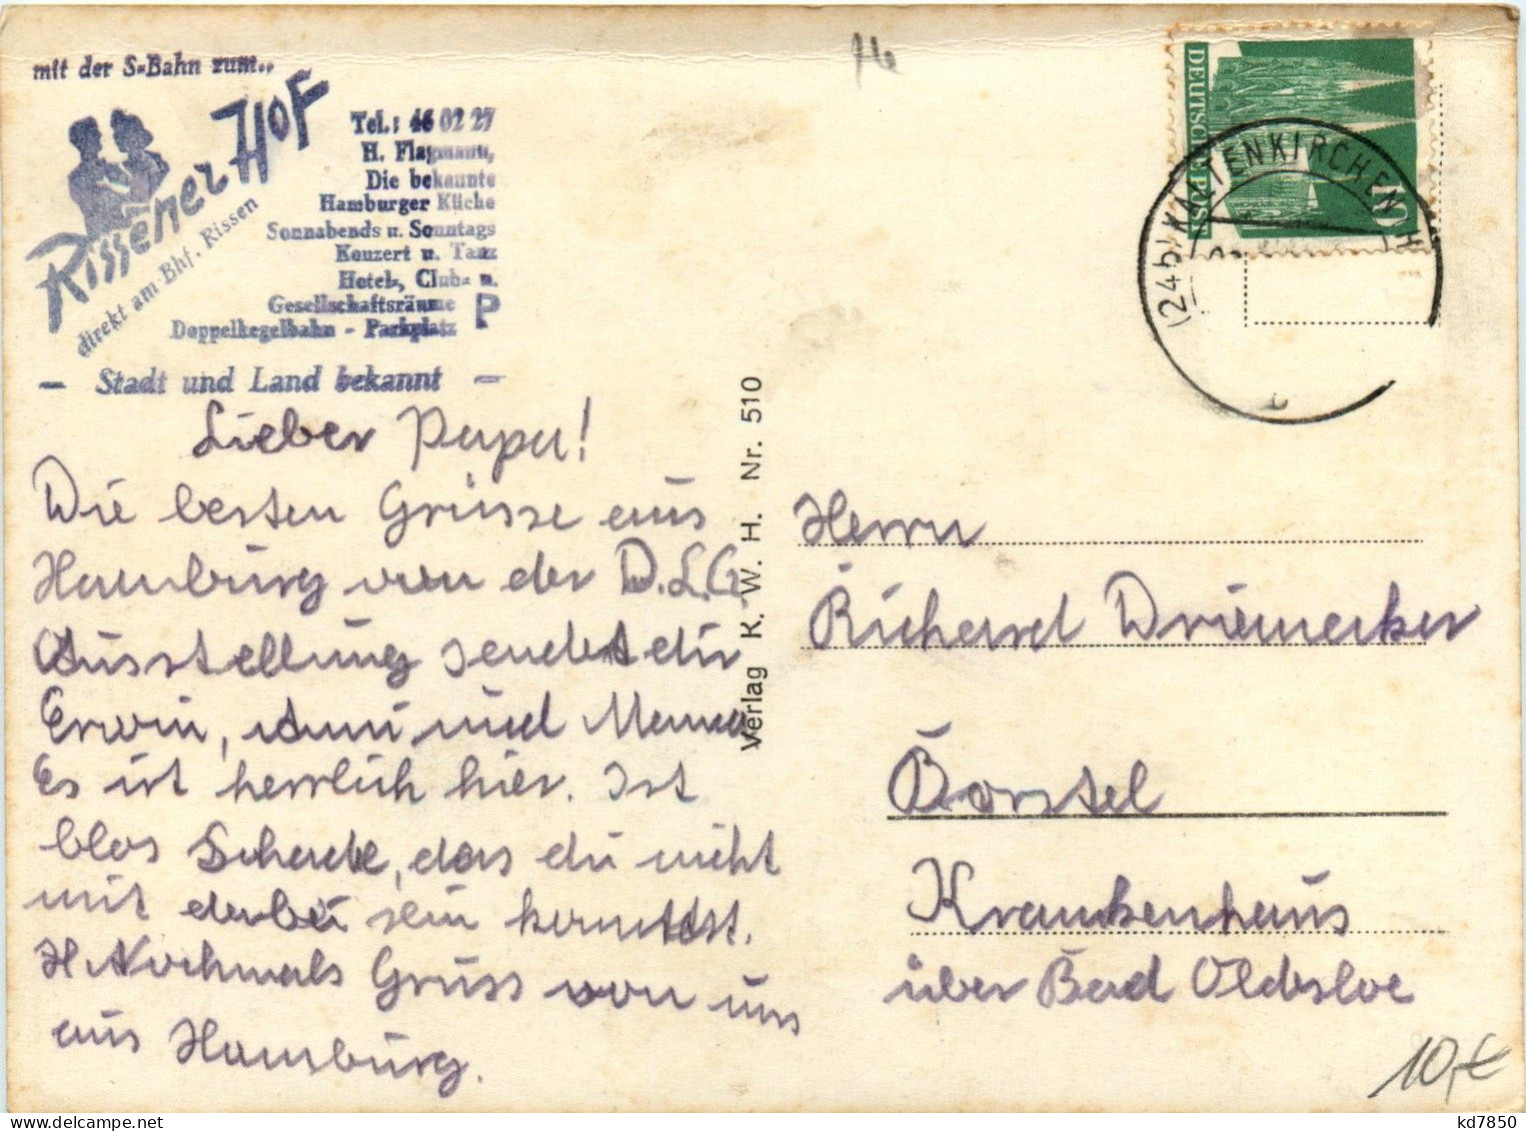 mit der S-Bahn zum..
Rissener Hof
direkt am Bhf. Rissen
Tel.: 46 02 27
H. Flagmann,
Die bekannte
Hamburger Küche
Sonnabends u. Sonntags
Konzert u. Tanz
Hotel-, Club- u.
Gesellschaftsräume P
Doppelkegelbahn - Parkplatz
- Stadt und Land bekannt -
16
DEUTSCHE POST
10
(24b) KALTENKIRCHEN
Lieber Papa!
Die besten Grüsse aus
Hamburg von der D.L.G
Ausstellung sendet dir
Erwin, Anni und Mama
Es ist herrlich hier. Ist
blos Schade, das du nicht
mit dabei sein kannst.
Nochmals Gruss von uns
aus Hamburg.
Verlag K. W. H. Nr. 510
Herrn
Richard Driemecker
Borstel
Krankenhaus
über Bad Oldesloe
10,-€
kd7850